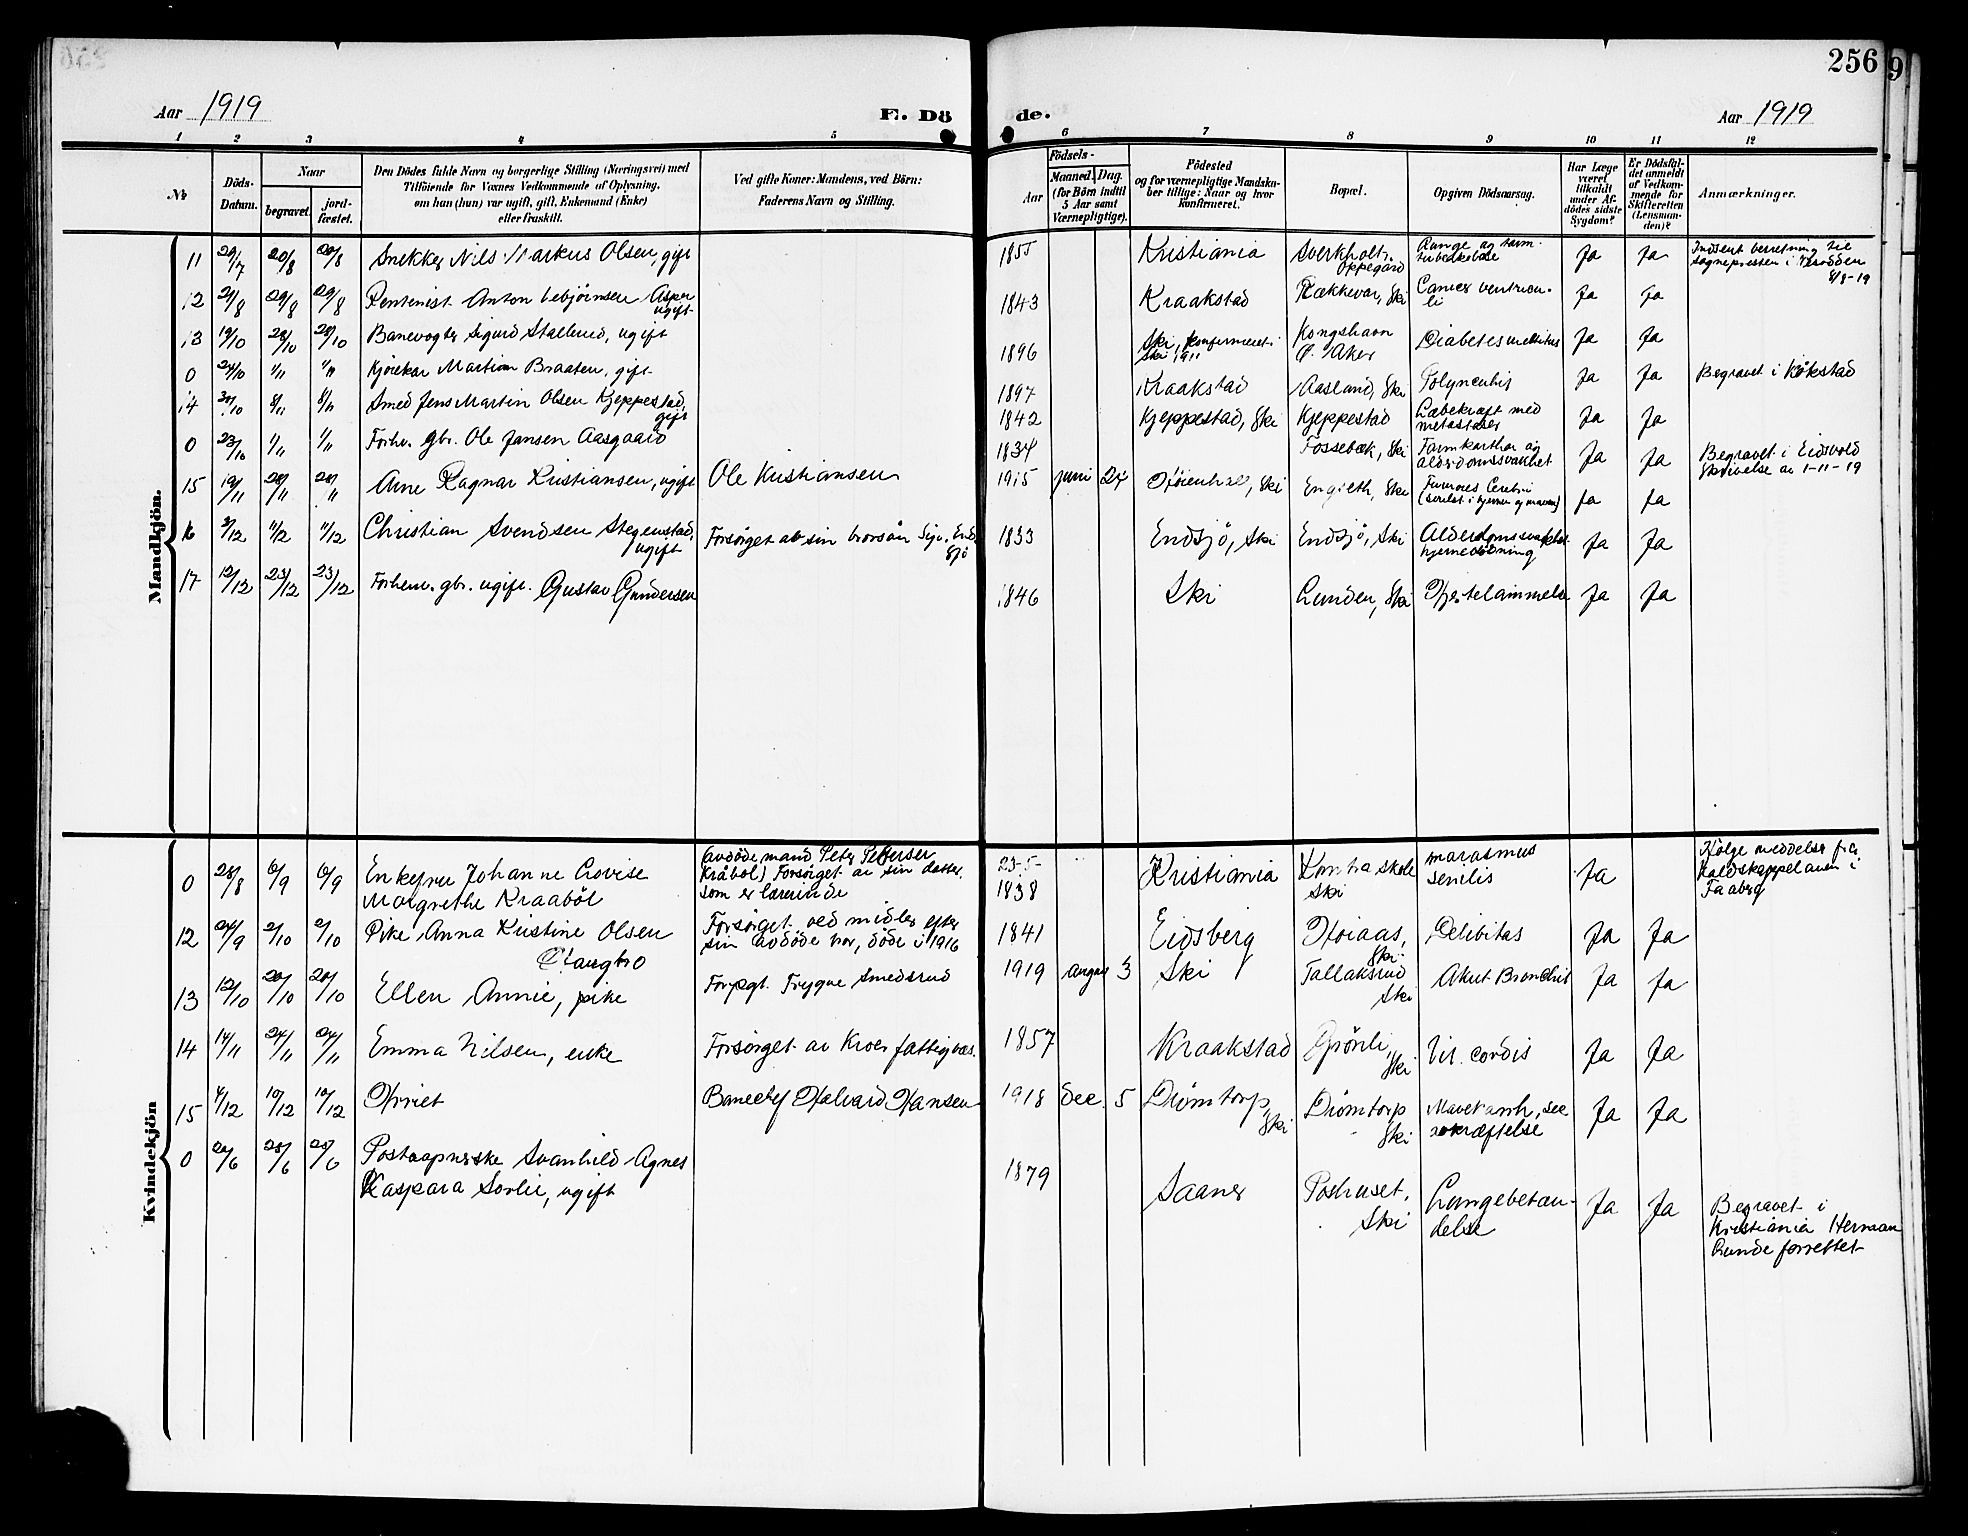 256
Aar 1919
E. Dö
de.
Aar 1919
1 2 3 4 5 6 7 8 9 10 11 12
No
Döds-Datum.
Naar
begravet.
jord-fæstet.
Den Dödes fulde Navn og borgerlige Stilling (Næringsvei) med
Tilföiende for Voxnes Vedkommende af Oplysning,
om han (hun) var ugift, gift, Enkemand (Enke)
eller fraskilt.
Ved gifte Koner: Mandens, ved Börn:
Faderens Navn og Stilling.
Födsels-
Aar
Maaned. Dag.
(for Börn indtil
5 Aar samt
Værnepligtige).
Födested
og for værnepligtige Mandskaber tillige: Naar og hvor
konfirmeret.
Bopæl.
Opgiven Dödsaarsag.
Har Læge
været
tilkaldt
under Afdödes sidste
Sygdom?
Er Dödsfaldet anmeldt
af Vedkommende for
Skifteretten
(Lensmanden)?
Anmærkninger.
Mandkjön.
11 29/7 20/8 20/8 Snekker Nils Markus Olsen, gift 1855 Kristiania Sverkholt, Oppegård Lunge og tarm-tuberkulose Ja Ja Indsent beretning til sognepresten i 8/8-19
12 21/8 29/8 29/8 Rentenist Anton Asper ugift 1843 Kraakstad Ski Cancer ventriculi Ja Ja
13 19/10 28/10 28/10 Banevogter Sigurd Stallerud, ugift 1896 Ski, konfirmeret i Ski 1911 Kongshavn Ø. Aker Diabetes mellitus Ja Ja
0 24/10 1/11 1/11 Kjørekar Martin Braaten, gift 1897 Kraakstad Aasland, Ski Ja Ja Begravet i Kråkstad
14 30/10 8/11 8/11 Smed Jens Martin Olsen Kjeppestad, gift 1842 Kjeppestad, Ski Kjeppestad Læbekræft med metastaser Ja Ja
0 23/10 1/11 1/11 Forhv. gbr. Ole Jansen Aasgaard 1834 Fossebæk, Ski Tarmkathar og alderdomssvakhet Ja Ja Begravet i Eidsvold Skrivelse av 1-11-19
15 19/11 28/11 28/11 Arne Ragnar Kristiansen, ugift Ole Kristiansen 1915 juni 24 Ski Ski Cerebri Ja Ja
16 3/12 11/12 11/12 Christian Svendsen Stegenstad, ugift Forsørget av sin brorsøn Sigv. Endsjø 1833 Endsjø, Ski Endsjø, Ski Alderdomssvakhet hjerneblødning Ja Ja
17 12/12 23/12 23/12 Forhenv. gbr. ugift. Gustav Gundersen 1846 Ski Lunden, Ski Hjertelammelse Ja Ja
Kvindekjön
0 28/8 6/9 6/9 Enkefru Johanne Lovise Margrethe Kraaböl (avdöde mand Peter Pettersen Kråböl) Forsørget av sin datter, som er lærerinde 23-5-1838 Kristiania Kontra skole Ski marasmus senilis Ja Følge meddelse fra kaldskappelanen i Faaberg
12 24/9 2/10 2/10 Pike Anna Kristine Olsen Haugbro Forsørget ved midler efter sin avdöde bror, döde i 1916 1841 Eidsberg Høiaas, Ski Debilitas Ja Ja
13 12/10 20/10 20/10 Ellen Annie, pike Forpgt. Trygve Smedsrud 1919 august 3 Ski Tallaksrud Ski Akut Bronchit Ja Ja
14 14/11 24/11 24/11 Emma Nilsen, enke Forsørget av Kroer fattigvæs. 1857 Kraakstad Grönli, Ski Vit. cordis Ja Ja
15 4/12 10/12 10/12 Harriet Halvard Hansen 1918 Dec. 5 Drömtorp, Ski Drömtorp Ski Ja Ja
0 21/6 28/6 28/6 Postaapnerske Svanhild Agnes Kaspara Sorlie, ugift 1879 Saaner Poshuset, Ski Lungebetændelse Ja Ja Begravet i Kristiania Herman Lunde forrettet